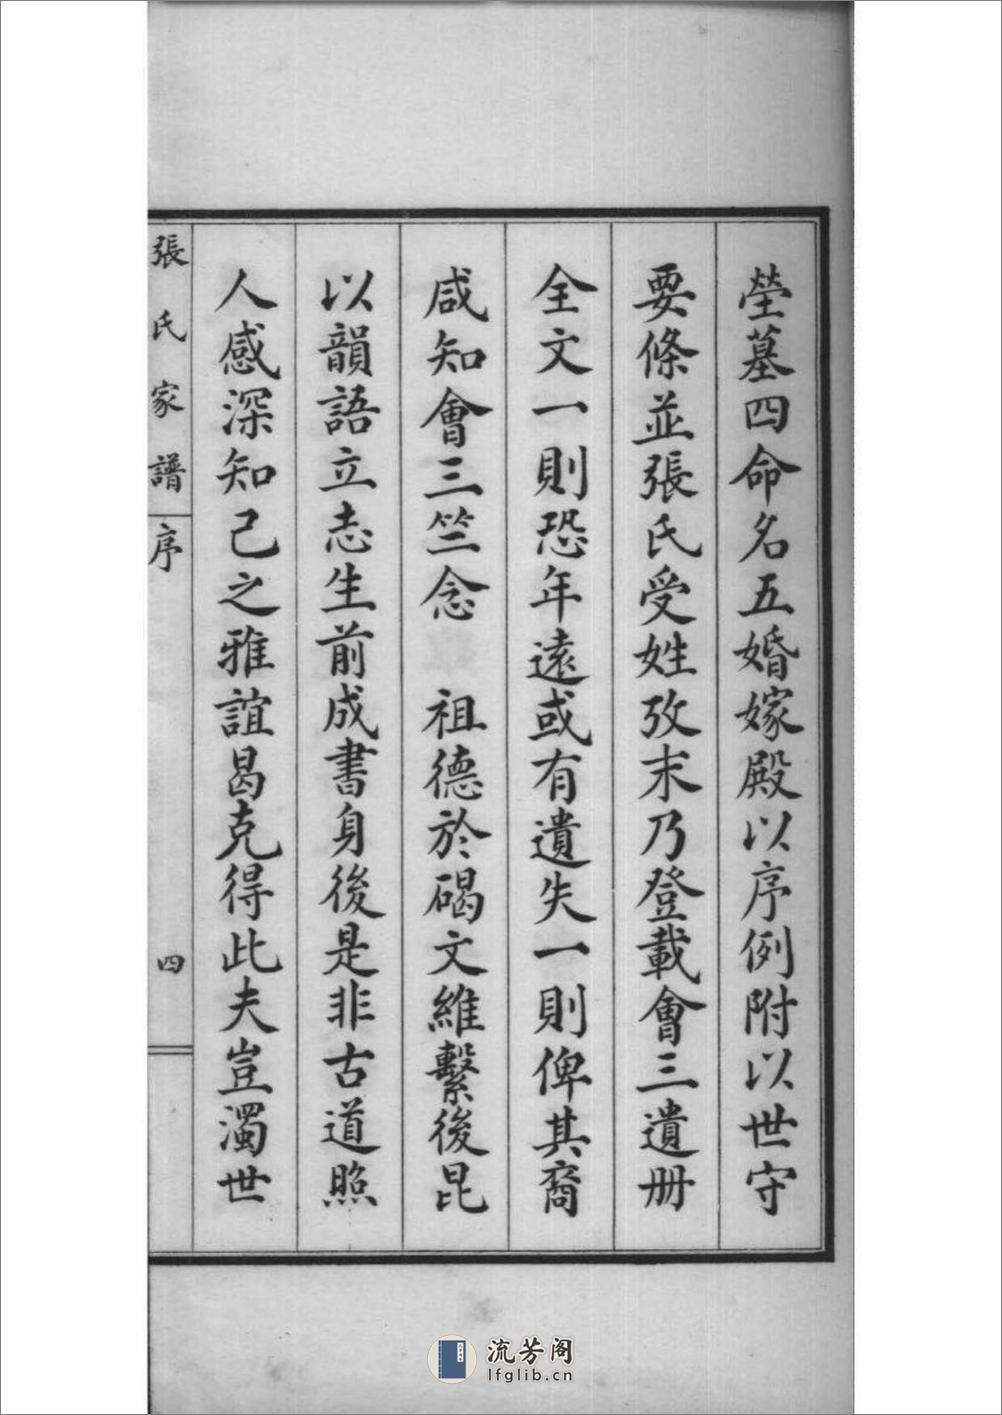 塋墓四命名五婚嫁殿以序例附以世守
要條並張氏受姓攷末乃登載會三遺册
全文一則恐年遠或有遺失一則俾其裔
咸知會三竺念　祖德於碣文維繫後昆
以韻語立志生前成書身後是非古道照
人感深知己之雅誼曷克得此夫豈濁世
張氏家譜　序　四
流芳阁
lfglib.cn